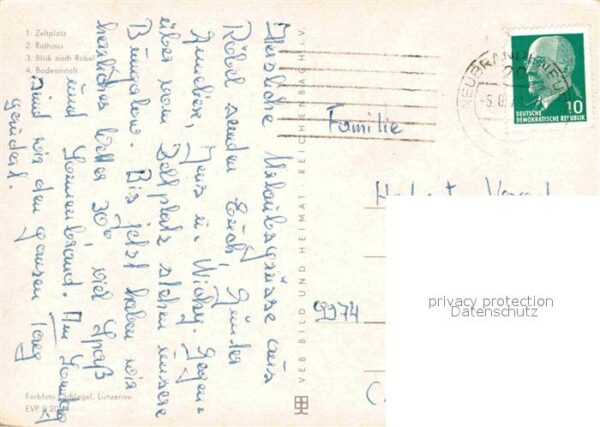 1. Zeltplatz
2. Rathaus
3. Blick nach Röbel
4. Badeanstalt
Herzliche Urlaubsgrüsse aus
Röbel senden Euch, Günter
Jens u. Gegen=
über vom Zeltplatz stehen unsere
Bungalow. Bis jetzt haben wir
herrliches Wetter 30° viel Spaß
und Sonnenbrand. Am Sonntag
sind wir den ganzen Tag
gerudert.
Farbfoto: Schlegel, Lunzenau
EVP
VEB BILD UND HEIMAT · REICHENBACH I. V.
NEUBRANDENBURG
10
DEUTSCHE
DEMOKRATISCHE REPUBLIK
Familie
9274
privacy protection
Datenschutz